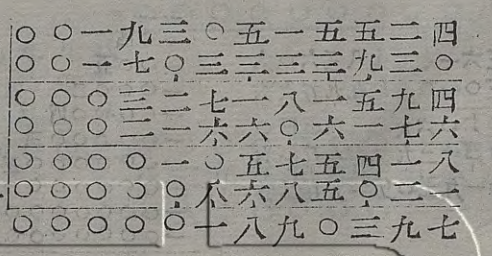 ○○一九三○五一五五二四
○○一七○三三三三九三○
○○○三二七一八一五九四
○○○二一六六○六一七六
○○○○一○五七五四一八
○○○○○八六八五○二一
○○○○○一八九○三九七